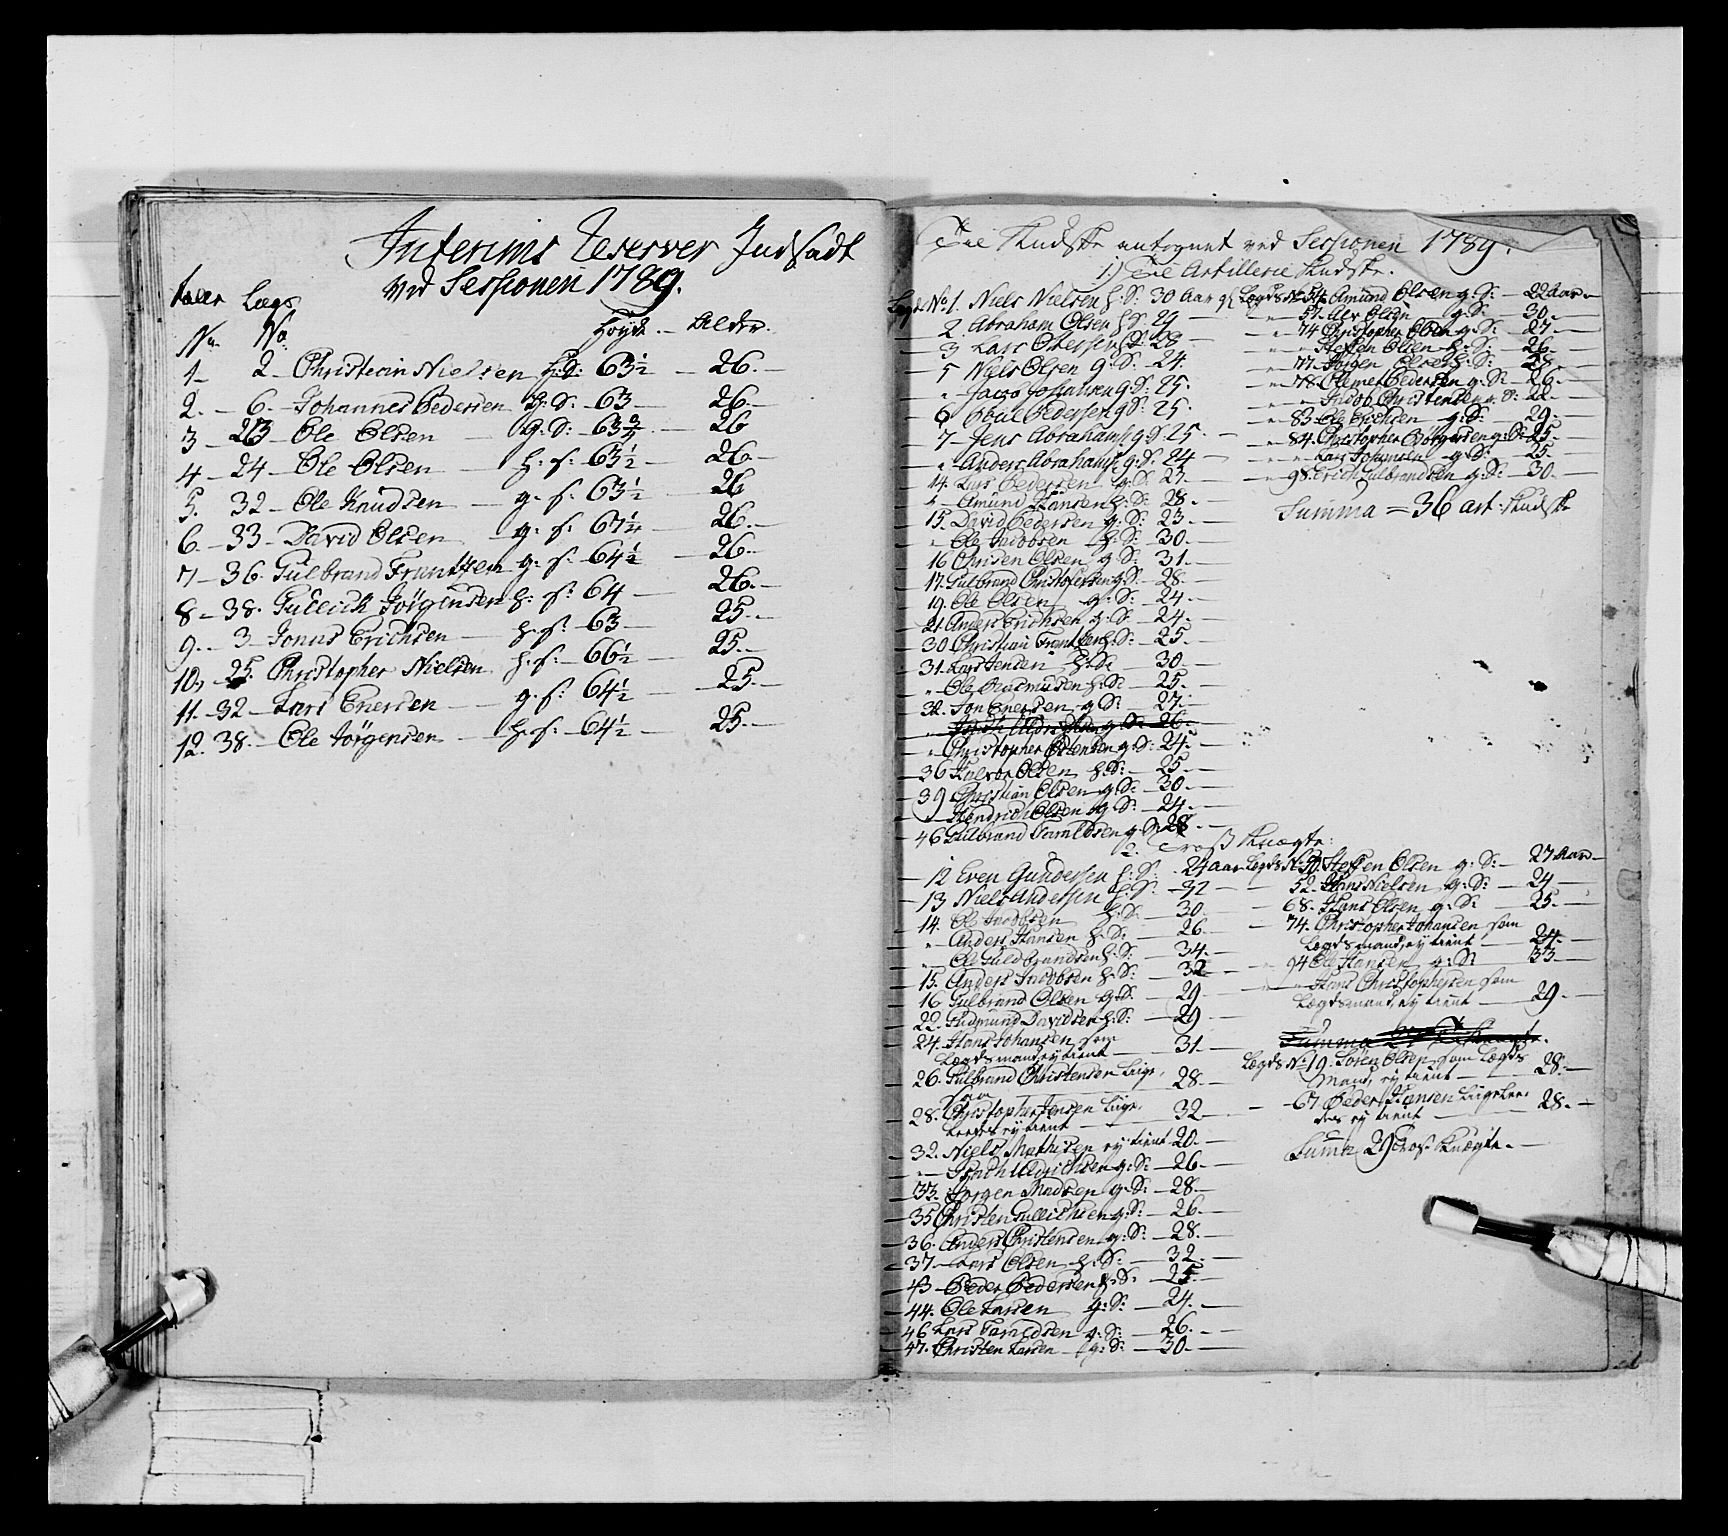 Interims Reserver Indsadt
ved Sessionen 1789.
Lægs
No No Høyde Alder.
1 2 Christian Nielsen h: S: 63½ 26.
2. 6. Johannes Pedersen h: S: 63 26.
3 23 Ole Olsen g: S: 63¾ 26
4 24 Ole Olsen h: s: 63½ 26.
5. 32 Ole Knudsen g: s: 63½ 26
6. 33 David Olsen g: s: 67½ 26.
7 36. Gulbrand Frantzen g: s: 64½ 26.
8 38. Gullich Jörgensen h: s: 64 26.
9. 3 Jonas Erichsen h: s: 63 25.
10, 25. Christopher Nielsen h: s: 66½ 25.
11. 32 Lars Enersen g: s: 64½ 25.
12. 38. Ole Jörgensen h: s: 64½ 25.
Til Kudske antegnet ved Sessionen 1789.
1) Til Artillerie Kudske.
No 1. Niels Nielsen h: S: 30 Aar
2 Abraham Olsen h: S: 29
3 Lars Olsen h: S: 28
5 Niels Olsen g: S: 24.
" Jacob Johansen g: S: 25.
6 Poul Pedersen g: S: 25.
7 Jens Abrahams: g: S: 25.
" Anders Abrahams: g: S: 24
14. Lars Pedersen g: S: 25.
" Amund Hansen h: S: 28.
15. David Pedersen g: S: 23.
" Ole Jacobsen h: S: 30.
16 Chrisen Olsen g: S: 31.
17. Gulbrand Christophersen g: S: 28.
19. Ole Olsen g: S: 24.
21. Anders Erichsen g: S: 24.
30 Christian Frantzen h: S: 25.
31. Lars Jensen h: S: 30
" Ole Rasmusen h: S: 25.
32. Jon Enersen g: S: 27.
g: S: 26.
" Christopher g: S: 24.
36 Halvor Olsen h: S: 25.
39 Christian Olsen g: S: 30.
" Hendrich Olsen g: S: 24.
46 Gulbrand Taraldsen g: S: 28.
Lægds No 54. Amund Olsen g: S: 22 Aar
57. Olsen g: S: 30.
74 Christopher Olsen g: S: 27.
" Steffen Olsen h: S: 26.
77. Jörgen Olsen h: S: 28.
78. Pedersen g: S: 26.
" Jacob Christensen g: S: 22.
83. Ole Erichsen g: S: 29.
84. Christopher g: S: 25.
" Lars Johansen g: S: 25.
98. Erich Gulbrandsen g: S: 30.
Summa = 36 art: Kudske
2. Tross Knægte:
12 Even Gundersen h: S: 24 Aar
13 Niels Andersen h: S: 32
14. Ole Jacobsen h: S: 30.
" Anders Hansen h: S: 26.
" Ole Guldbrandsen h: S: 34.
15. Anders Jacobsen h: S: 32
16 Gulbrand Olsen g: S: 29
22. Gudmund Davidsen h: S: 29
24. Hans Johansen som
Lægdsmand, ey tient 31.
26. Gulbrand Christensen lige,
saa 28.
28. Christopher Jensen lige,
ledes ey tient 32
32. Niels Mathisen ey tient 20.
" g: S: 26.
33. Jörgen Madsen g: S: 28.
35 Christen Gullichsen g: S: 26.
36. Anders Christensen g: S: 28.
37. Lars Olsen h: S: 32.
43 Peder Pedersen h: S: 25.
44. Ole Larsen g: S: 24.
46 Lars Taraldsen g: S: 26.
47. Christen Larsen g: S: 30.
Lægds No 50. Steffen Olsen g: S: 27 Aar
52. Hans Nielsen g: S: 24
68. Hans Olsen g: S: 25.
74. Christopher Johansen som
Lægdsmand, ey tient 24.
94 Ole Hansen g: S: 33.
" Hans Christophersen som
Lægdsmand, ey tient 29.
Summa 27 Knægte.
Lægds No 19. Soren Olsen som Lægds
Mand, ey tient 28.
67 Peder Hansen ligele:
des ey tient 28.
Summa 29 Tros Knægte.